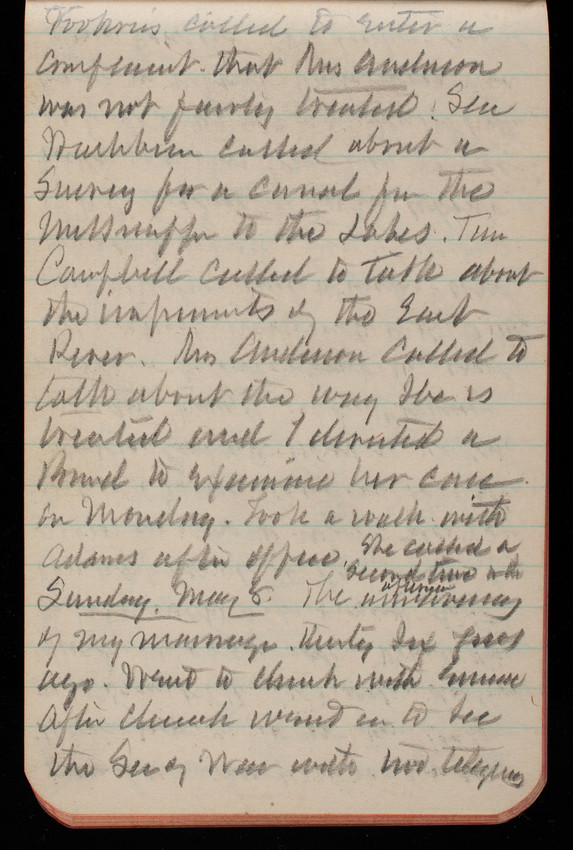 called to enter a
complaint that Mrs Anderson
was not fairly treated. Sen
Washburn called about a
Survey for a canal for the
Mississippi to the Lakes. Tim
Campbell called to talk about
the improvements of the East
River. Mrs Anderson called to
talk about the way She is
treated and I directed a
Board to examine her case
on Monday. Took a walk with
Adams after office. She called a
second time in the
afternoon
Sunday, May 8. The anniversary
of my marriage thirty six years
ago. Went to church with Emma
After church went in to see
the Sec of War with two telegrams